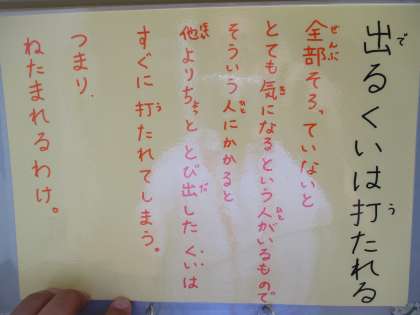 出るくいは打たれる
全部そろっていないと
とても気になるという人がいるもので
そういう人にかかると
他よりちょっととび出したくいは
すぐに打たれてしまう。
つまり、
ねたまれるわけ。